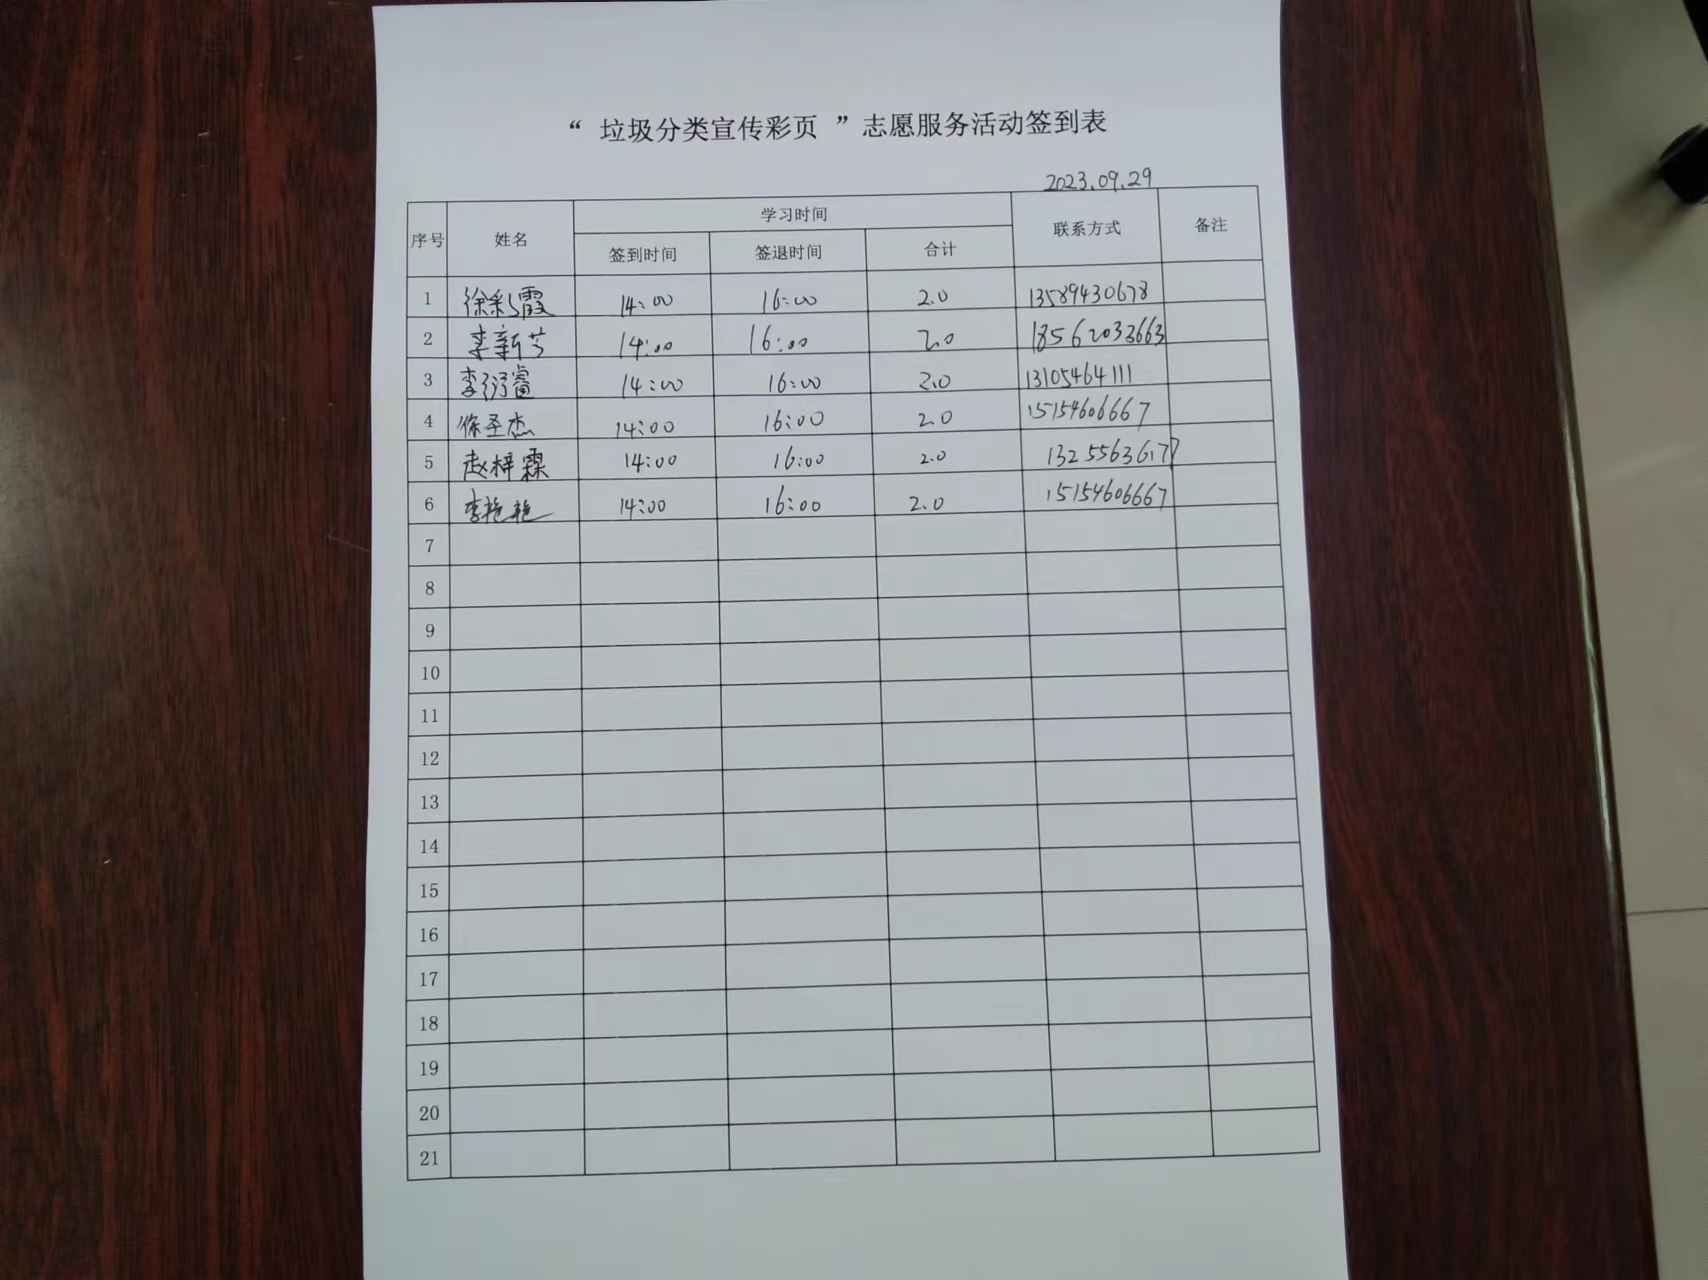 “ 垃圾分类宣传彩页 ”志愿服务活动签到表
2023.09.29
序号 姓名 学习时间 联系方式 备注
签到时间 签退时间 合计
1 徐彩霞 14:00 16:00 2.0 13589430678
2 李新芳 14:00 16:00 2.0 18562033663
3 李泓睿 14:00 16:00 2.0 13105464111
4 徐圣杰 14:00 16:00 2.0 15154606667
5 赵梓霖 14:00 16:00 2.0 13255636177
6 李艳艳 14:00 16:00 2.0 15154606667
7
8
9
10
11
12
13
14
15
16
17
18
19
20
21